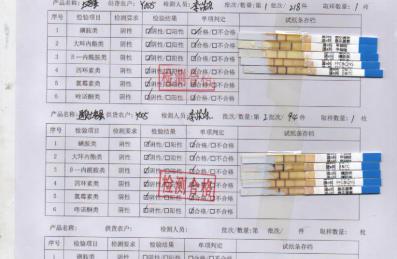 产品名称: 供货农户: Y085 检测人员: 批次/数量:第1批次/218件 取样数量:1枚
序号 检验项目 检测要求 检验结果 单项判定 试纸条存档
1 磺胺类 阴性 ☑阴性/□阳性 ☑合格/□不合格
2 大环内酯类 阴性 ☑阴性/□阳性 ☑合格/□不合格
3 β-内酰胺类 阴性 ☑阴性/□阳性 ☑合格/□不合格
4 四环素类 阴性 ☑阴性/□阳性 ☑合格/□不合格
5 氯霉素类 阴性 ☑阴性/□阳性 ☑合格/□不合格
6 喹诺酮类 阴性 ☑阴性/□阳性 ☑合格/□不合格
检测合格
产品名称: 供货农户: Y085 检测人员: 批次/数量:第2批次/94件 取样数量:1枚
序号 检验项目 检测要求 检验结果 单项判定 试纸条存档
1 磺胺类 阴性 ☑阴性/□阳性 ☑合格/□不合格
2 大环内酯类 阴性 ☑阴性/□阳性 ☑合格/□不合格
3 β-内酰胺类 阴性 ☑阴性/□阳性 ☑合格/□不合格
4 四环素类 阴性 ☑阴性/□阳性 ☑合格/□不合格
5 氯霉素类 阴性 ☑阴性/□阳性 ☑合格/□不合格
6 喹诺酮类 阴性 ☑阴性/□阳性 ☑合格/□不合格
检测合格
产品名称: 供货农户: 检测人员: 批次/数量:第 批次/ 件 取样数量: 枚
序号 检验项目 检测要求 检验结果 单项判定 试纸条存档
1 磺胺类 阴性 □阴性/□阳性 □合格/□不合格